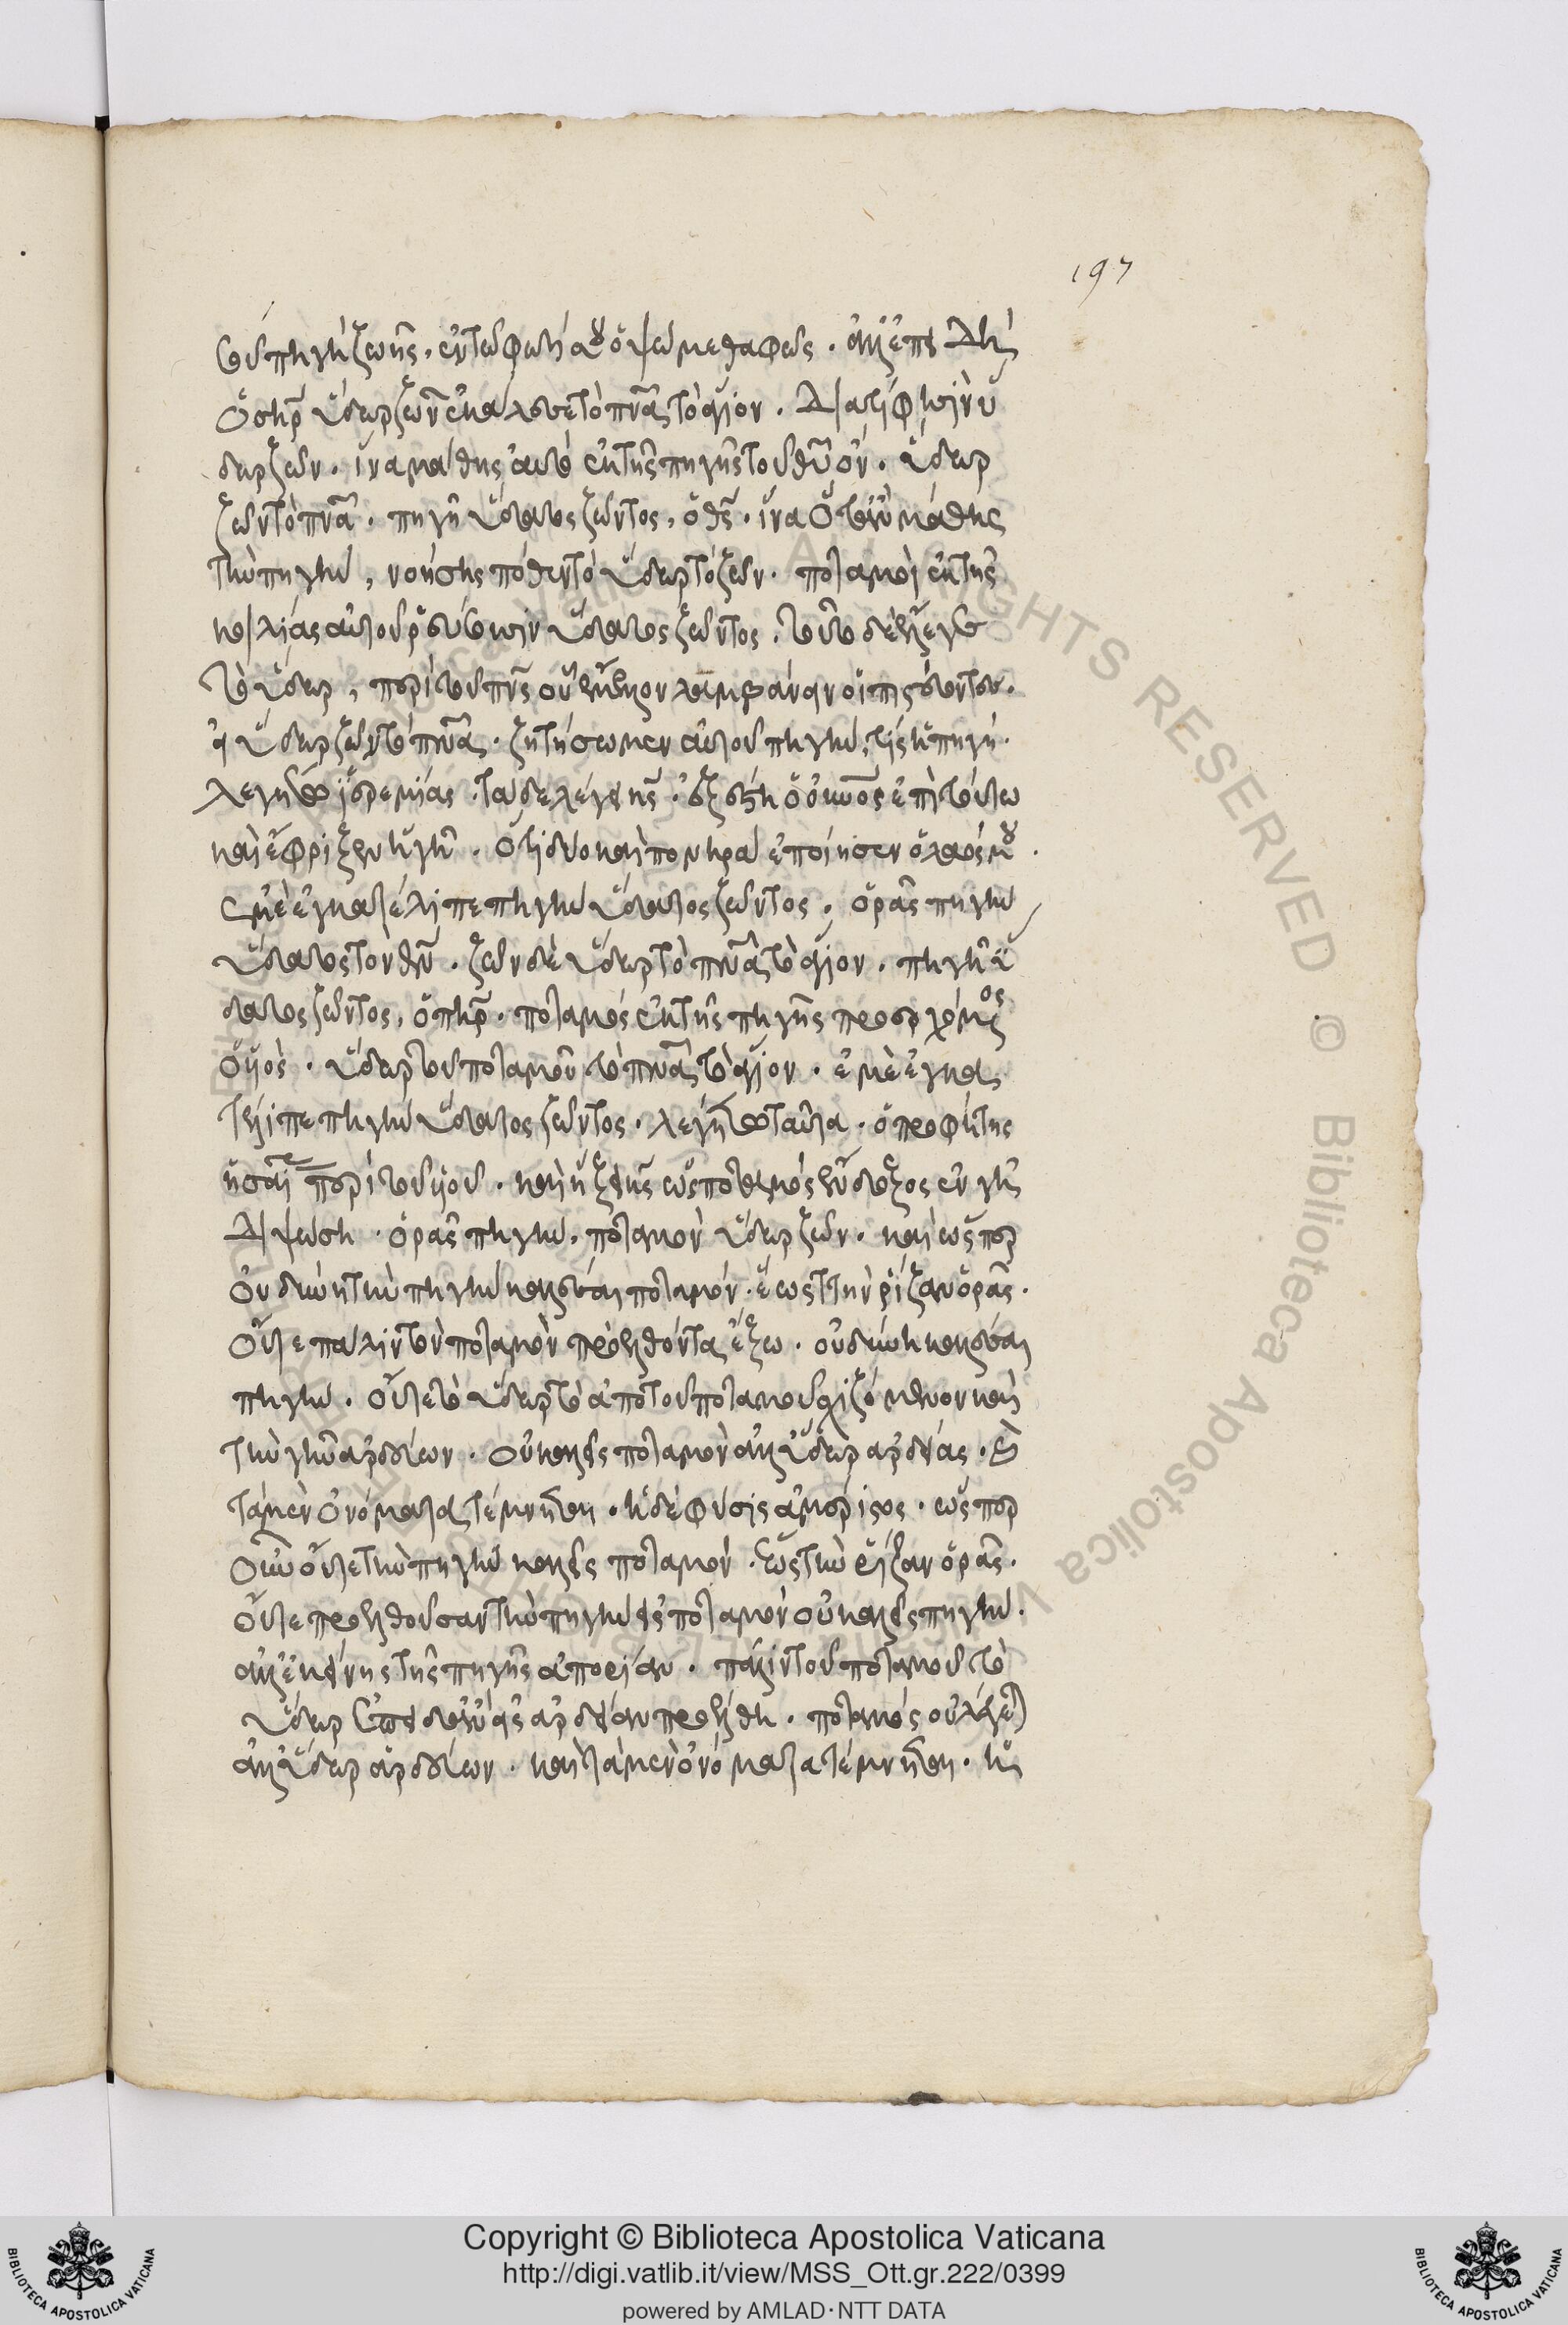 197
σοὶ πηγὴ ζωῆς. ἐν τῶ φωτί σου ὀψώμεθα φῶς. ἀλλ' ἐπειδὴ
ὁ σηρ ὕδωρ ζῶν ἐκάλουσε τὸ πνα τὸ ἅγιον. διατί φησιν ὕ
δωρ ζῶν. ἵνα μάθης αὐτὸ ἐκ τῆς πηγῆς τοῦ θυ ὄν. ὕδωρ
ζῶν τὸ πνα. πηγὴ ὕδατος ζῶντος, ὁ θς. ἵνα ὅταν μάθης
τὴν πηγὴν, νοήσης πόθεν τὸ ὕδωρ τὸ ζῶν. ποταμοὶ ἐκ τῆς
κοιλίας αὐτοῦ ρεύσωσιν ὕδατος ζῶντος. τοῦτο δὲ ἔλεγε
τὸ ὕδωρ, περὶ τοῦ πνς οὗ ἔμελλον λαμβάνειν οἱ πιστεύοντες.
εἰ ὕδωρ ζῶν τὸ πνα. ζητήσωμεν αὐτοῦ πηγὴν, τίς ἡ πηγή.
λέγει ἱερεμίας. τάδε λέγει κς. ἐξέστη ὁ ουνος ἐπὶ τούτω
καὶ ἔφριξεν ἡ γῆ. ὅτι δύο καὶ πονηρὰ ἐποίησεν ὁ λαός μου.
ἐμὲ ἐγκατέλιπε πηγὴν ὕδατος ζῶντος. ὁρᾶς πηγὴν
ὕδατος τὸν θν. ζῶν δὲ ὕδωρ τὸ πνα τὸ ἅγιον. πηγὴ ὕ
δατος ζῶντος, ὁ πηρ. ποταμὸς ἐκ τῆς πηγῆς προερχόμενος
ὁ υἱός. ὕδωρ τοῦ ποταμοῦ τὸ πνα τὸ ἅγιον. ἐμὲ ἐγκα
τέλιπε πηγὴν ὕδατος ζῶντος. λέγει ταῦτα. ὁ προφήτης
ἡσαΐ περὶ τοῦ υἱοῦ. καὶ ἥξει κς ὡς ποταμὸς ἔνδοξος ἐν γῆ
διψώση. ὁρᾶς πηγὴν. ποταμὸν ὕδωρ ζῶν. καὶ ὥσπερ
οὐ δύνη τὴν πηγὴν καλέσαι ποταμόν. ἕως τὴν ρίζαν ὁρᾶς.
οὔτε πάλιν τὸν ποταμὸν προελθόντα ἔξω. οὐ δύνη καλέσαι
πηγὴν. οὔτε τὸ ὕδωρ τὸ ἀπὸ τοῦ ποταμοῦ σχιζόμενον καὶ
τὴν γῆν ἀρδεῦον. οὐ καλεῖς ποταμὸν ἀλλ' ὕδωρ ἀρδείας.
τὰ μὲν ὀνόματα τέμνεται. ἡ δὲ φύσις ἀμέριστος. ὥσπερ
οὖν οὔτε τὴν πηγὴν καλεῖς ποταμόν. ἕως τὴν ρίζαν ὁρᾶς.
οὔτε προελθοῦσαν τὴν πηγὴν εἰς ποταμὸν οὐ καλεῖς πηγὴν.
ἀλλ' ἐκείνης τῆς πηγῆς ἀπορίαν. πάλιν τοῦ ποταμοῦ τὸ
ὕδωρ ἀρδείαν προελθη. ποταμὸς οὐ λέγεται
ἀλλ' ὕδωρ ἀρδεῦον. καὶ τὰ μὲν ὀνόματα τέμνεται. ἡ
Copyright © Biblioteca Apostolica Vaticana
http://digi.vatlib.it/view/MSS_Ott.gr.222/0399
powered by AMLAD·NTT DATA